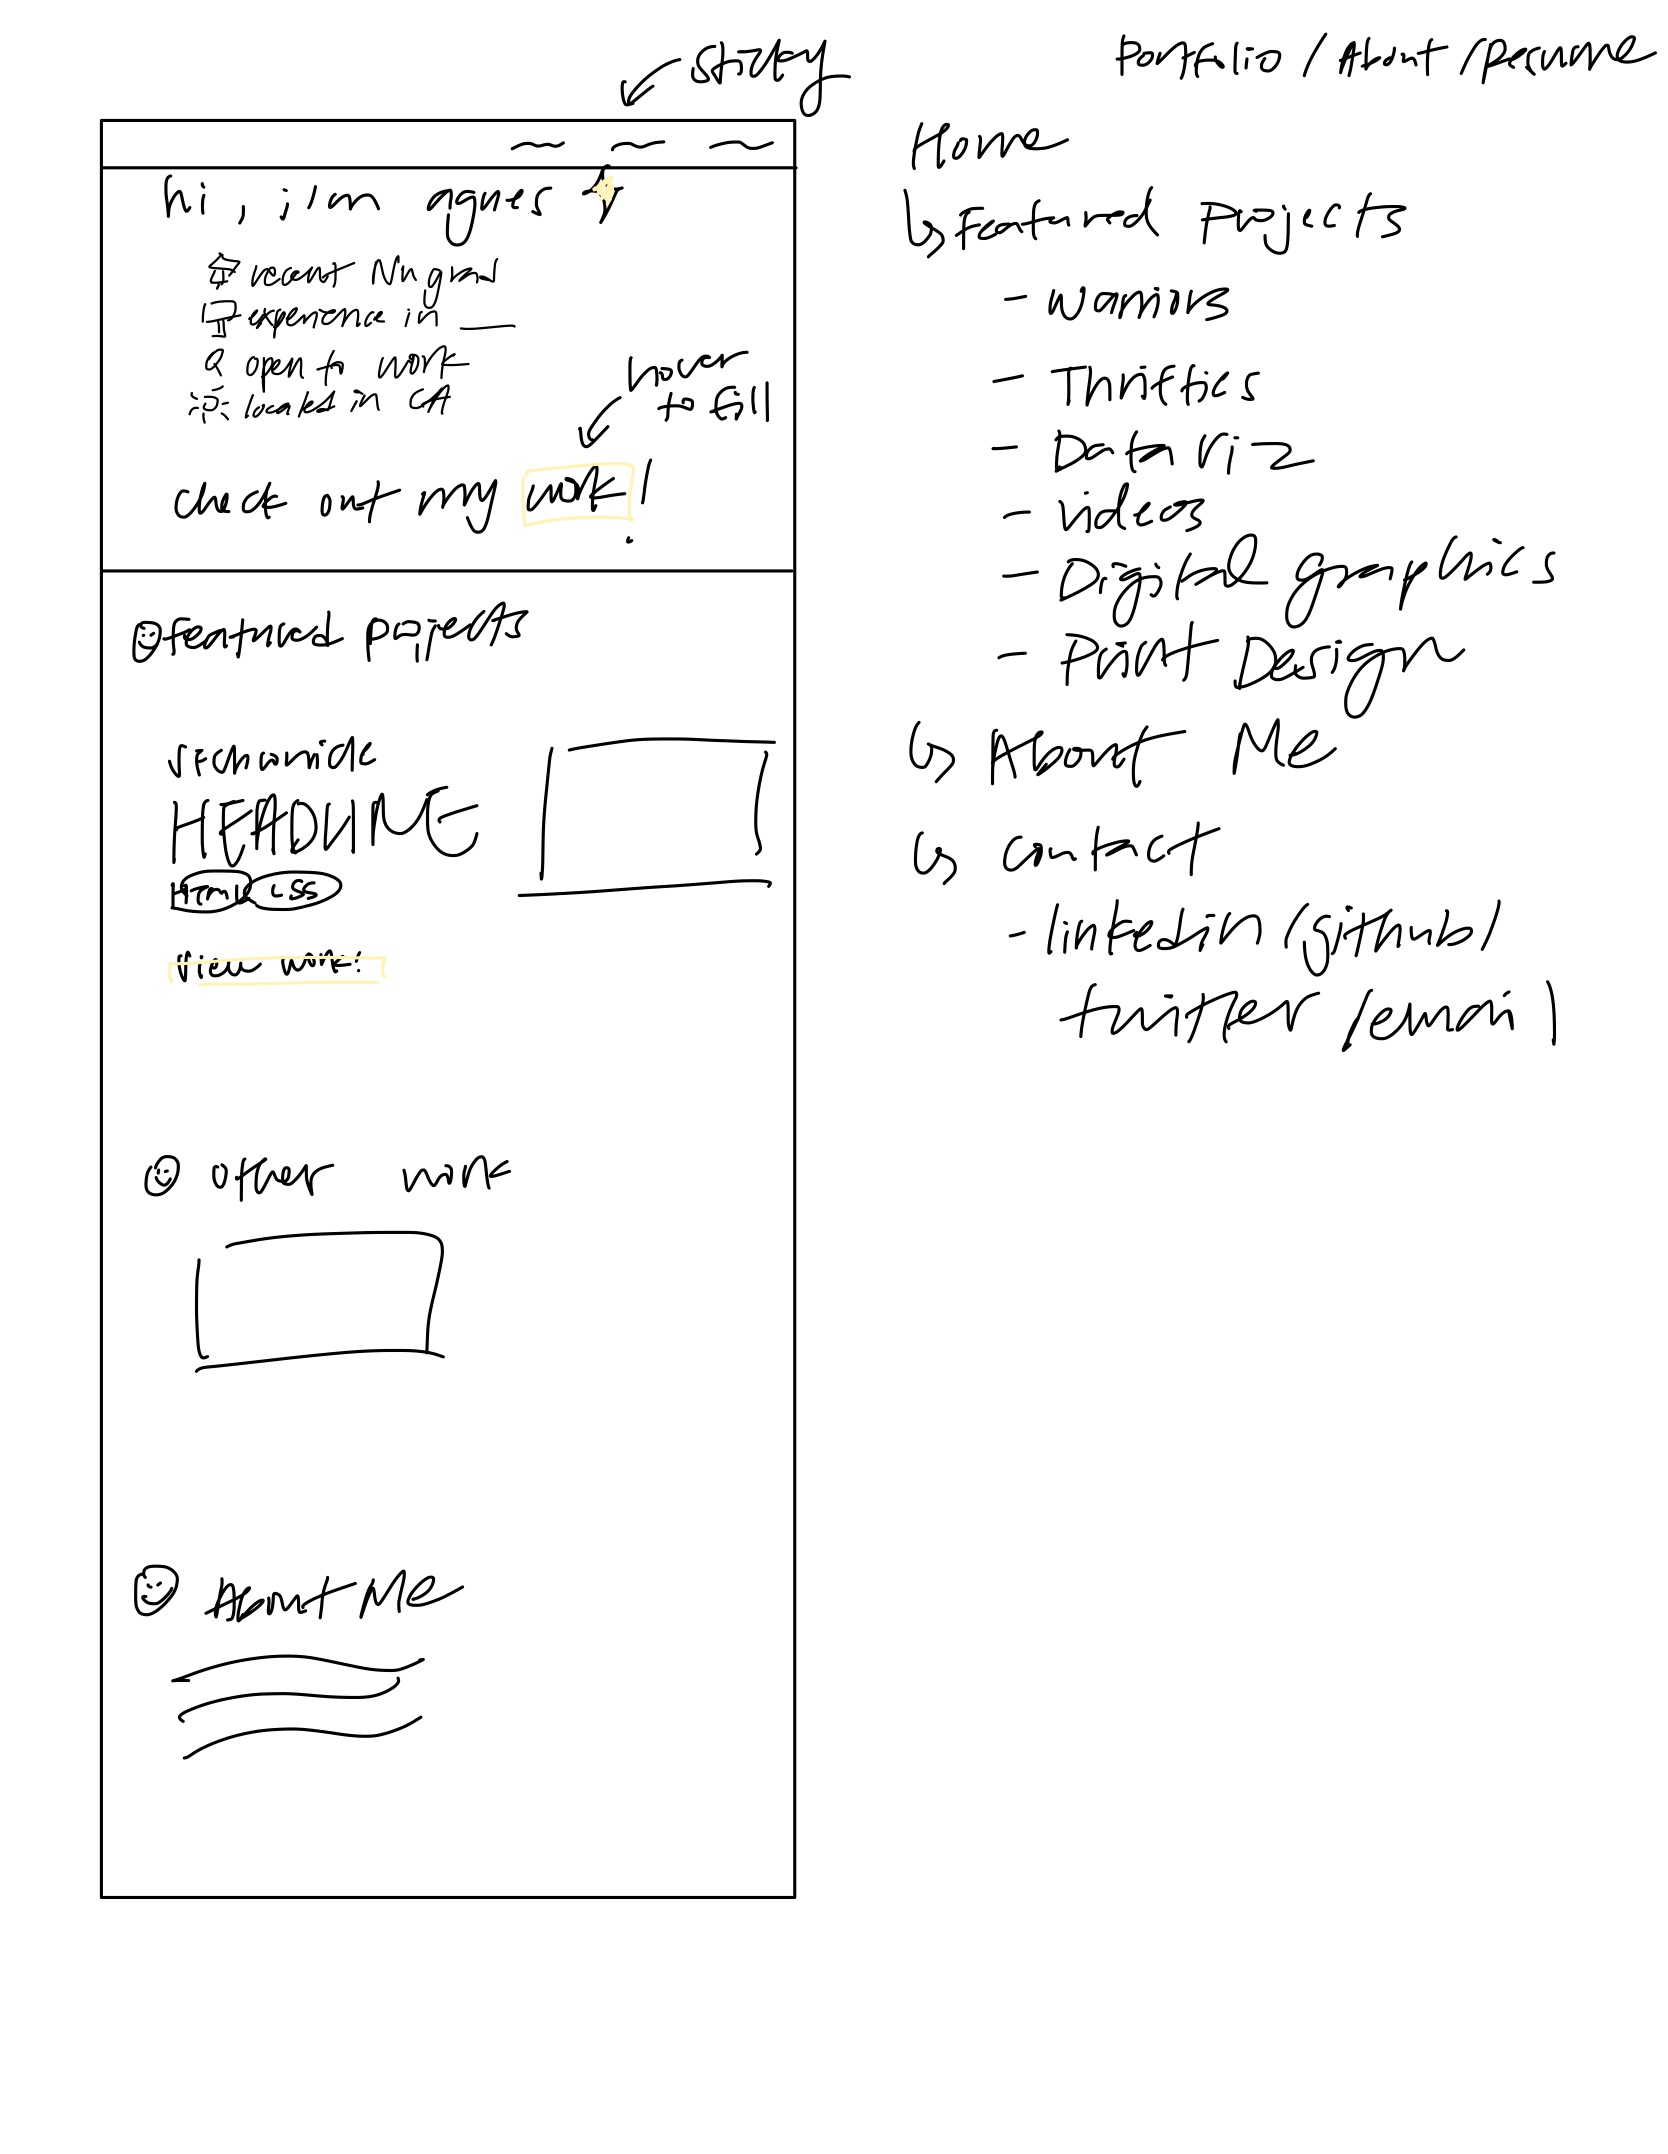 sticky
hi, i'm agnes
recent NU grad
experience in ___
open to work
located in CA
hover
to fill
check out my work!
featured projects
SFChronicle
HEADLINE
HTML CSS
View work!
other work
About Me
Portfolio / About / Resume
Home
↳ Featured Projects
- Warriors
- Thriftics
- Data Viz
- Videos
- Digital graphics
- Print Design
↳ About Me
↳ Contact
- linkedin / github /
twitter / email